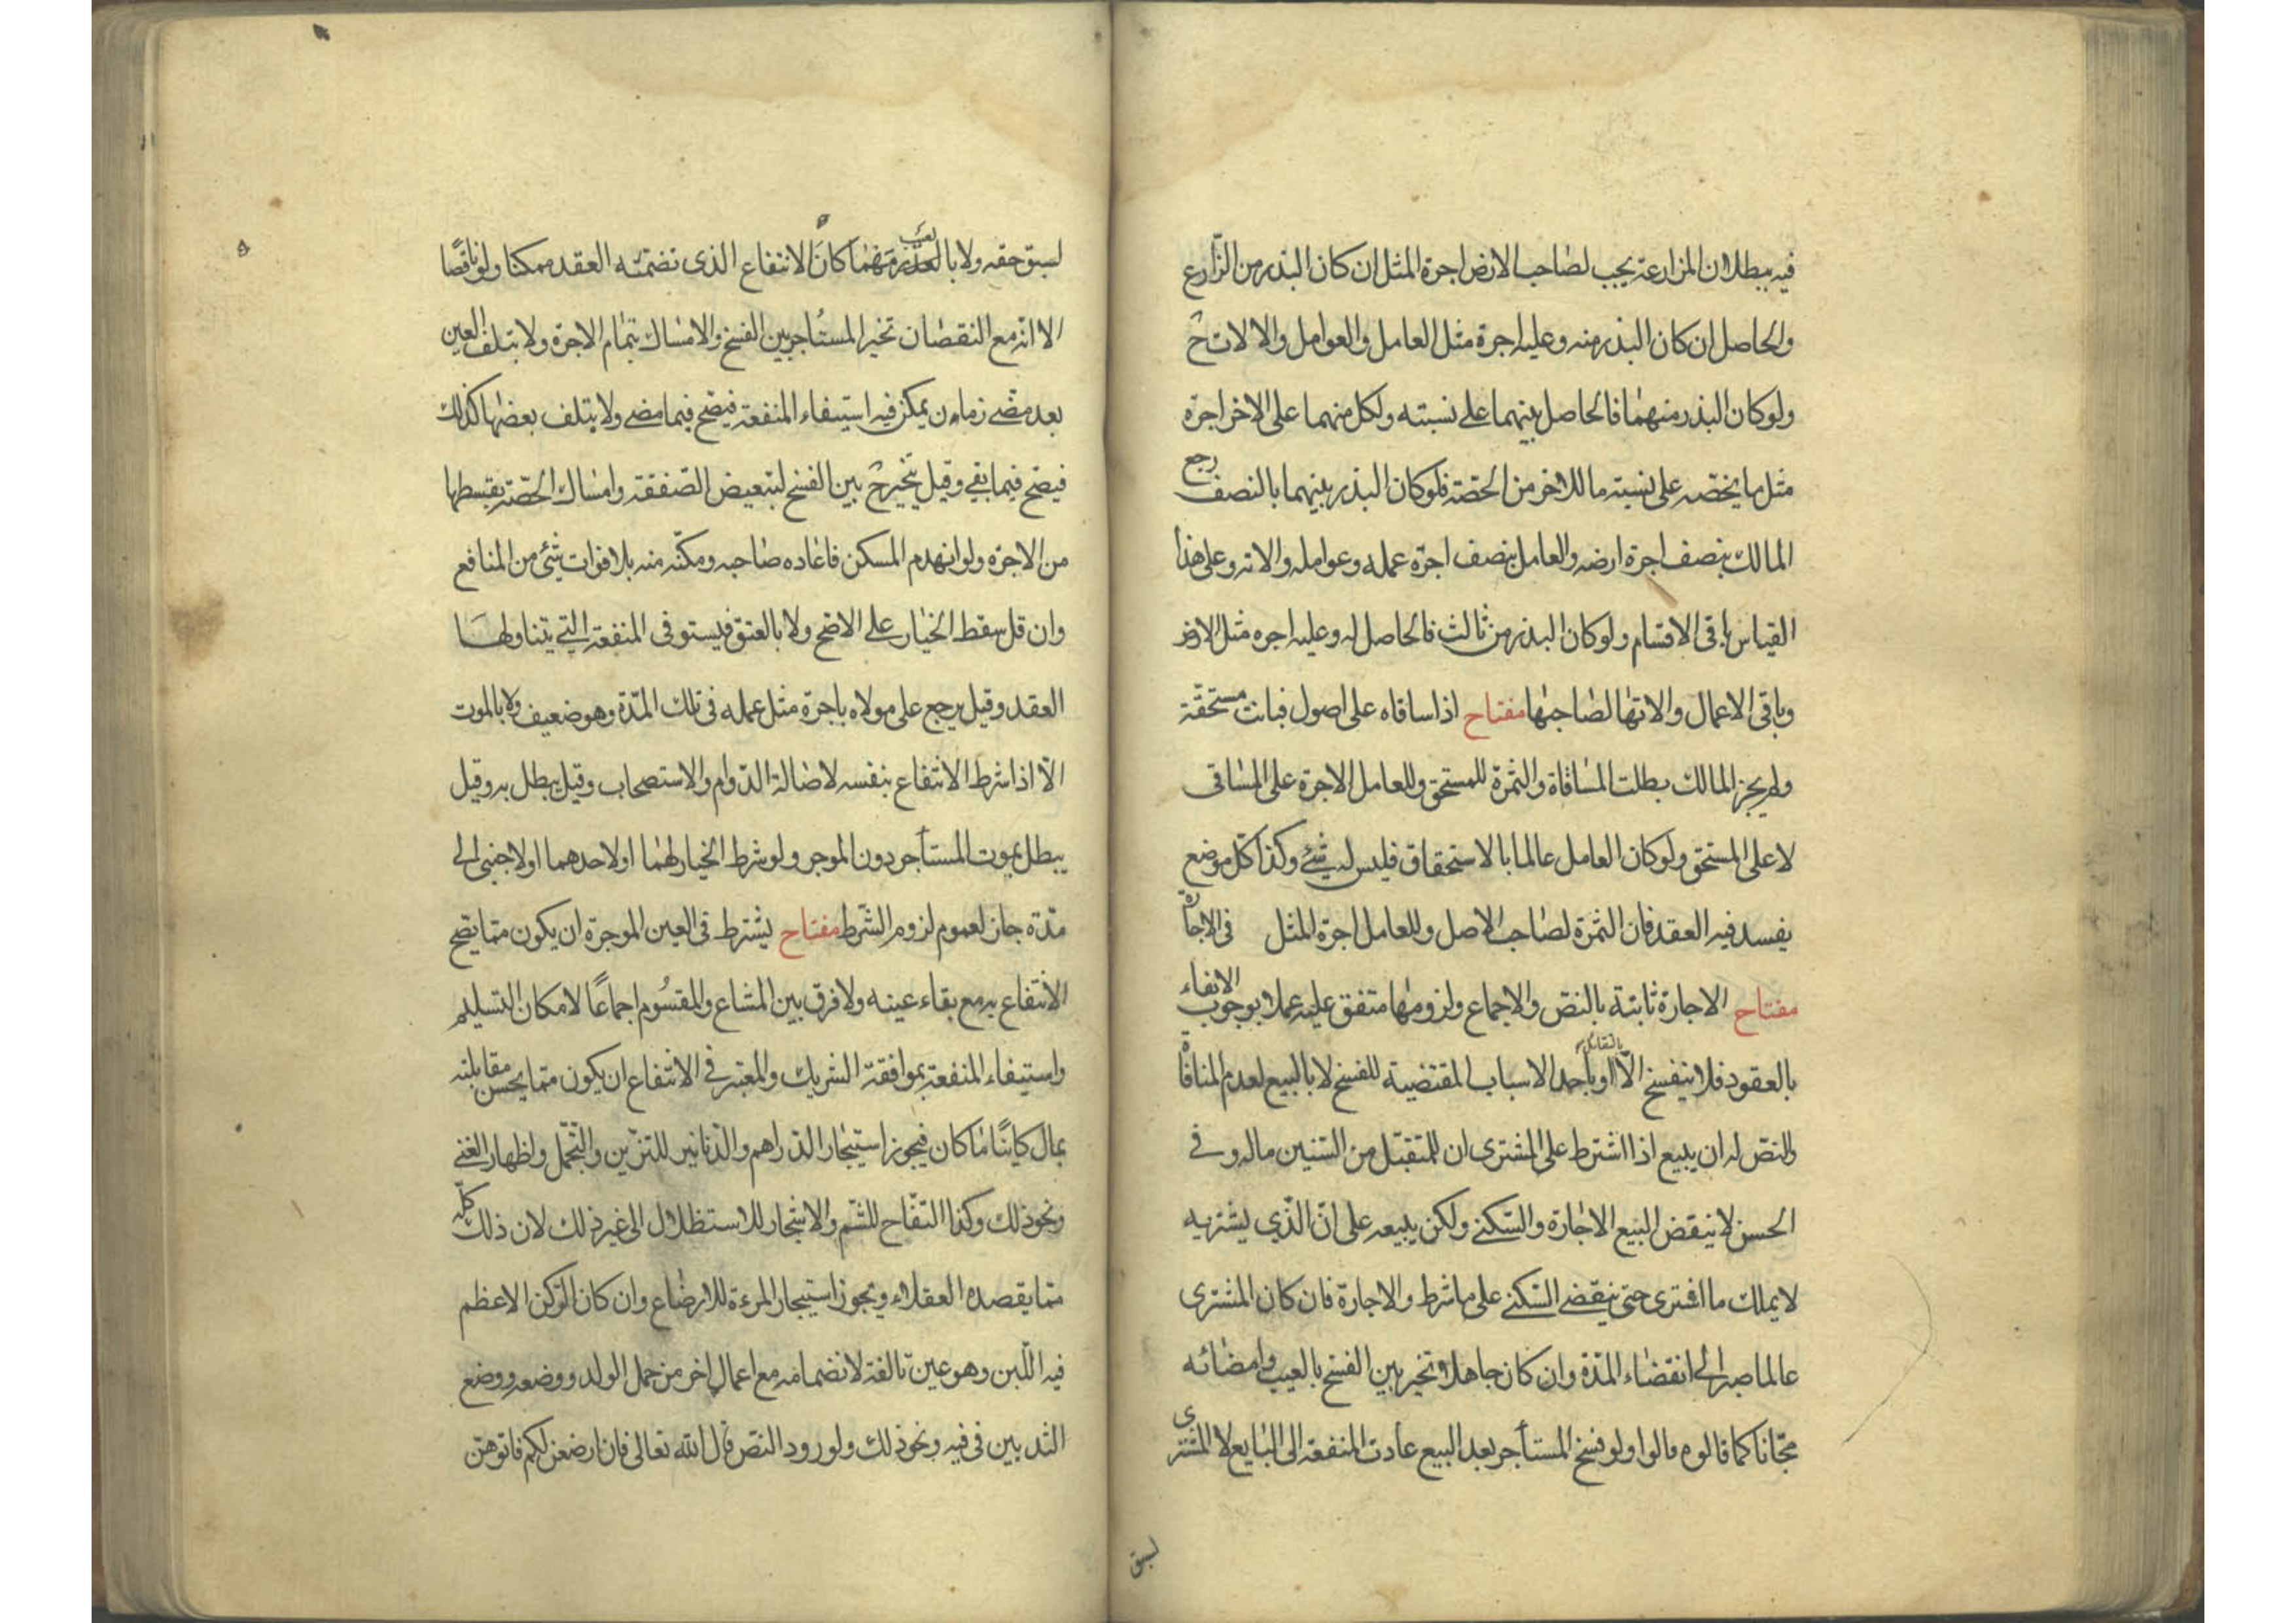 فيه ببطلان المزارعة يجب لصاحب الارض اجرة المثل ان كان البذر من الزّارع
والحاصل ان كان البذر منه وعليه اجرة مثل العامل والعوامل والالات ح
ولو كان البذر منهما فالحاصل بينهما على نسبته ولكل منهما على الاخر اجرة
مثل ما يخصّه على نسبة ما للاخر من الحصّة فلو كان البذر بينهما بالنصف رجع
المالك بنصف اجرة ارضه والعامل بنصف اجرة عمله وعوامله والاته وعلى هذا
القياس باقى الاقسام ولو كان البذر من ثالث فالحاصل له وعليه اجره مثل الارض
وباقى الاعمال والاتها لصاحبها مفتاح اذا ساقاه على اصول فبانت مستحقّة
ولم يجز المالك بطلت المساقاة والثمرة للمستحق وللعامل الاجرة على المساقى
لا على المستحق ولو كان العامل عالما بالاستحقاق فليس له شئ وكذا كلّ موضع
يفسد فيه العقد فان الثمرة لصاحب الاصل وللعامل اجرة المثل فى الاجارة
مفتاح الاجارة ثابتة بالنصّ والاجماع ولزومها متفق عليه عملا بوجوب الايفاء
بالعقود فلا ينفسخ الّا بالتقايل او باحد الاسباب المقتضية للفسخ لا بالبيع لعدم المنافاة
والنصّ له ان يبيع اذا اشترط على المشترى ان للمتقبّل من السّنين ماله وفى
الحسن لا ينقض البيع الاجارة والسّكنى ولكن يبيعه على انّ الّذى يشتريه
لا يملك ما اشترى حتى ينقضى السّكنى على ما شرط والاجارة فان كان المشترى
عالما صبر الى انقضاء المدّة وان كان جاهلا تخير بين الفسخ بالعيب وامضائه
مجّانا كما قالوه قالوا ولو فسخ المستأجر بعد البيع عادت المنفعة الى البايع لا المشترى
لسبق
لسبق حقه ولا بالعذر مهما كان الانتفاع الذى تضمّنه العقد ممكنا ولو ناقصًا
الا انّه مع النقصان تخير المستاجر بين الفسخ والامساك بتمام الاجرة ولا بتلف العين
بعد مضى زمان يمكن فيه استيفاء المنفعة فيصح فيما مضى ولا بتلف بعضها كذلك
فيصح فيما بقى وقيل يتخير ح بين الفسخ لتبعيض الصّفقة وامساك الحصّة بقسطها
من الاجرة ولو انهدم المسكن فاعاده صاحبه ومكّنه منه بلا فوات شئ من المنافع
وان قل سقط الخيار على الاصح ولا بالعتق فيستوفى المنفعة التى يتناولها
العقد وقيل يرجع على مولاه باجرة مثل عمله فى تلك المدّة وهو ضعيف ولا بالموت
الّا اذا شرط الانتفاع بنفسه لاصالة الدّوام والاستصحاب وقيل يبطل به وقيل
يبطل بموت المستأجر دون الموجر ولو شرط الخيار لهما او لاحدهما او لاجنبى الى
مدّة جاز لعموم لزوم الشّرط مفتاح يشترط فى العين الموجرة ان يكون ممّا يصح
الانتفاع به مع بقاء عينه ولا فرق بين المشاع والمقسُوم اجماعًا لامكان التسليم
واستيفاء المنفعة بموافقة الشريك والمعتبر فى الانتفاع ان يكون ممّا يحسن مقابلته
بمال كاينًا ما كان فيجوز استيجار الدّراهم والدّنانير للتزيّن والتّجمّل واظهار الغنى
ونحو ذلك وكذا التفّاح للشّم والاشجار للاستظلال الى غير ذلك لان ذلك كلّه
ممّا يقصده العقلاء ويجوز استيجار المرءة للارضاع وان كان الرّكن الاعظم
فيه اللّبن وهو عين تالفة لانضمامه مع اعمال اخر من حمل الولد ووضعه ووضع
الثديين فى فيه ونحو ذلك ولورود النصّ قال الله تعالى فان ارضعن لكم فاتوهنّ